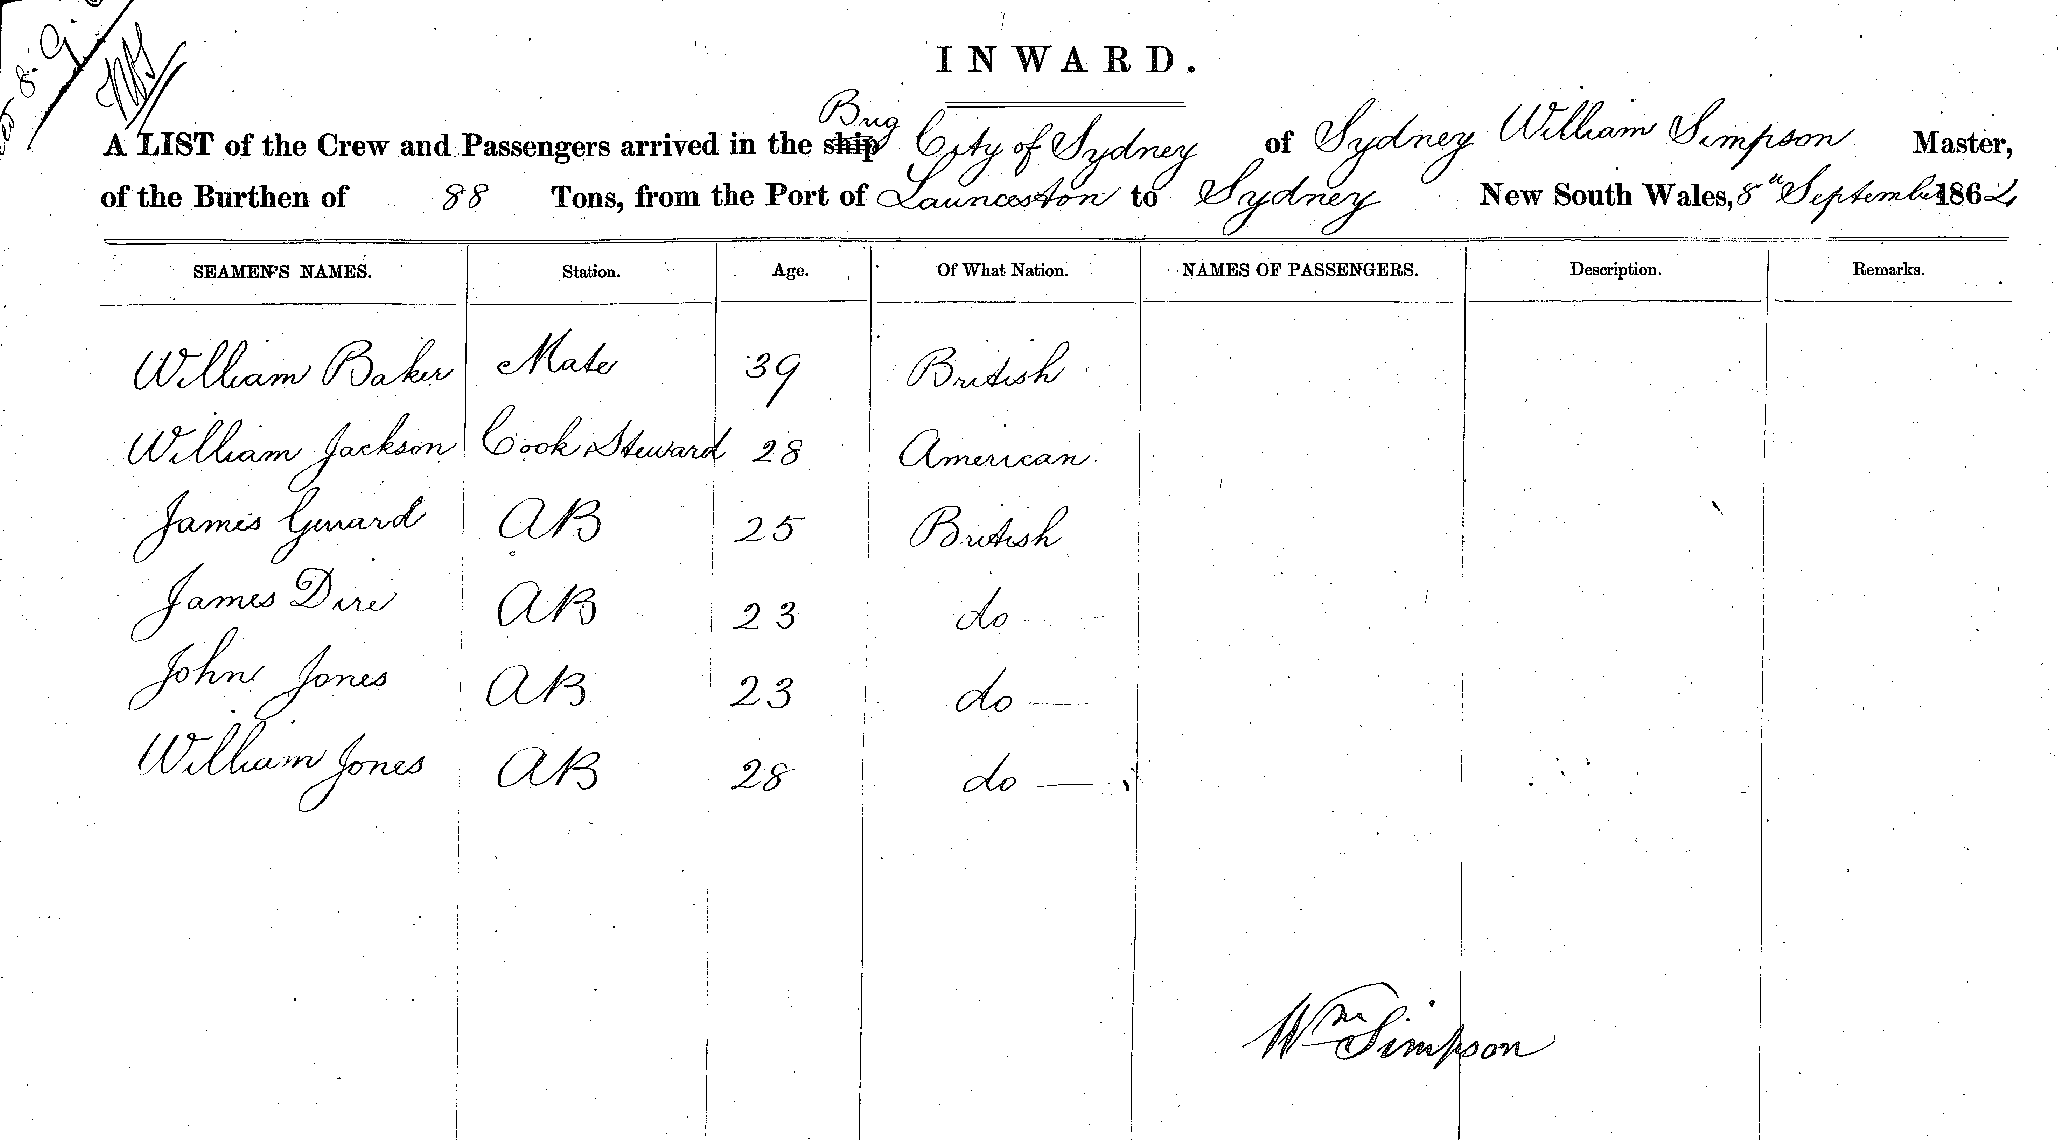 INWARD.
Brig
A LIST of the Crew and Passengers arrived in the ship City of Sydney of Sydney William Simpson Master,
of the Burthen of 88 Tons, from the Port of Launceston to Sydney New South Wales, 8th September 1862
SEAMEN'S NAMES. Station. Age. Of What Nation. NAMES OF PASSENGERS. Description. Remarks.
William Baker Mate 39 British
William Jackson Cook Steward 28 American
James Gerrard AB 25 British
James Dire AB 23 do
John Jones AB 23 do —
William Jones AB 28 do —
Wm Simpson